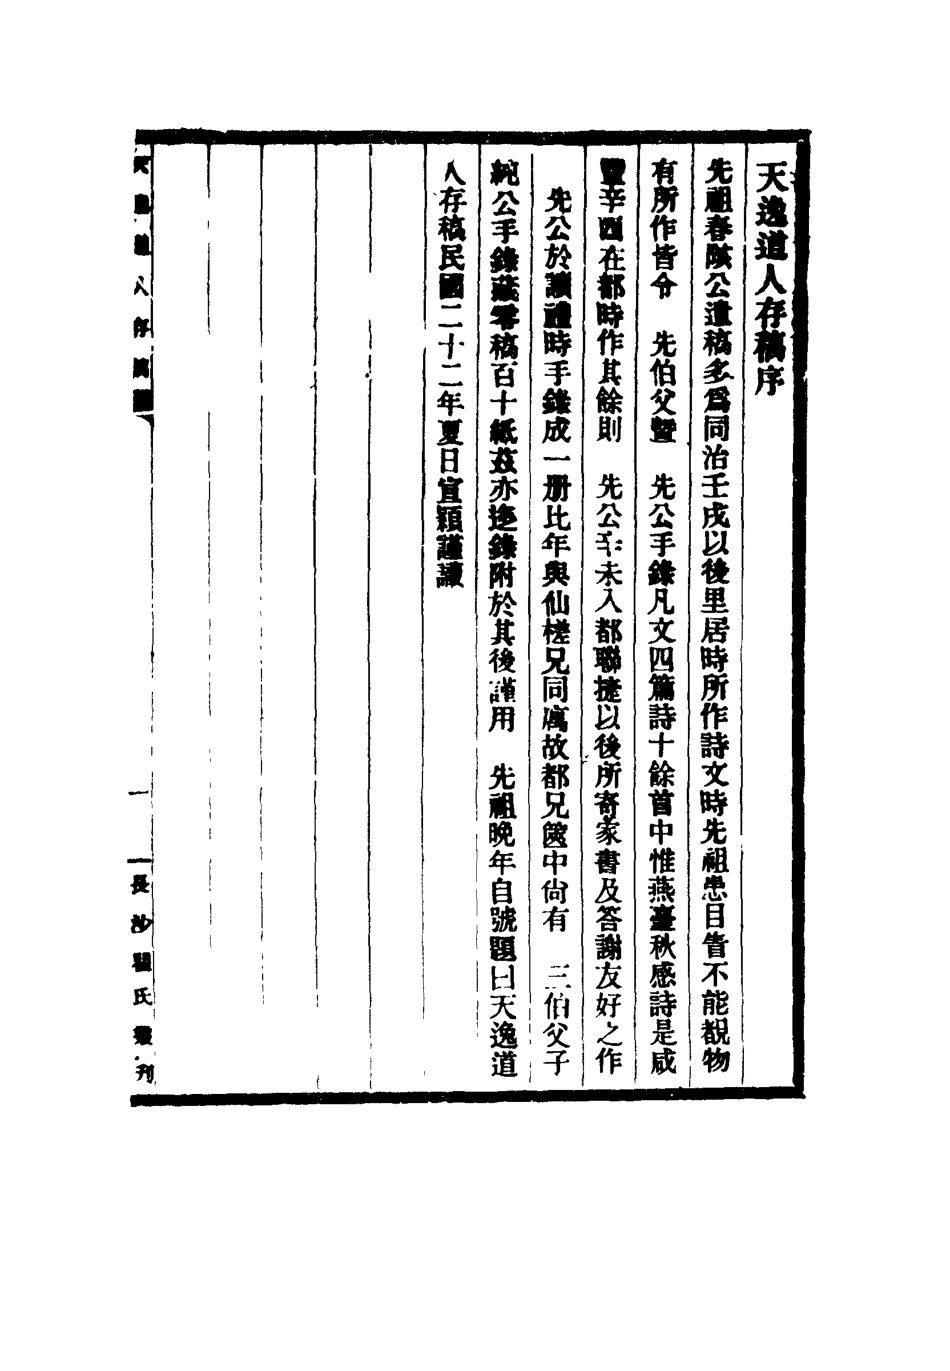 天逸道人存稿序
先祖春陔公遺稿多爲同治壬戌以後里居時所作詩文時先祖患目眚不能覩物
有所作皆令　先伯父暨　先公手錄凡文四篇詩十餘首中惟燕臺秋感詩是咸
豐辛酉在都時作其餘則　先公辛未入都聯捷以後所寄家書及答謝友好之作
先公於讀禮時手錄成一册比年與仙槎兄同寓故都兄篋中尙有　三伯父子
純公手錄叢零稿百十紙茲亦迻錄附於其後謹用　先祖晚年自號題曰天逸道
人存稿民國二十二年夏日宣穎謹識
天逸道人存稿
一
長沙瞿氏叢刊